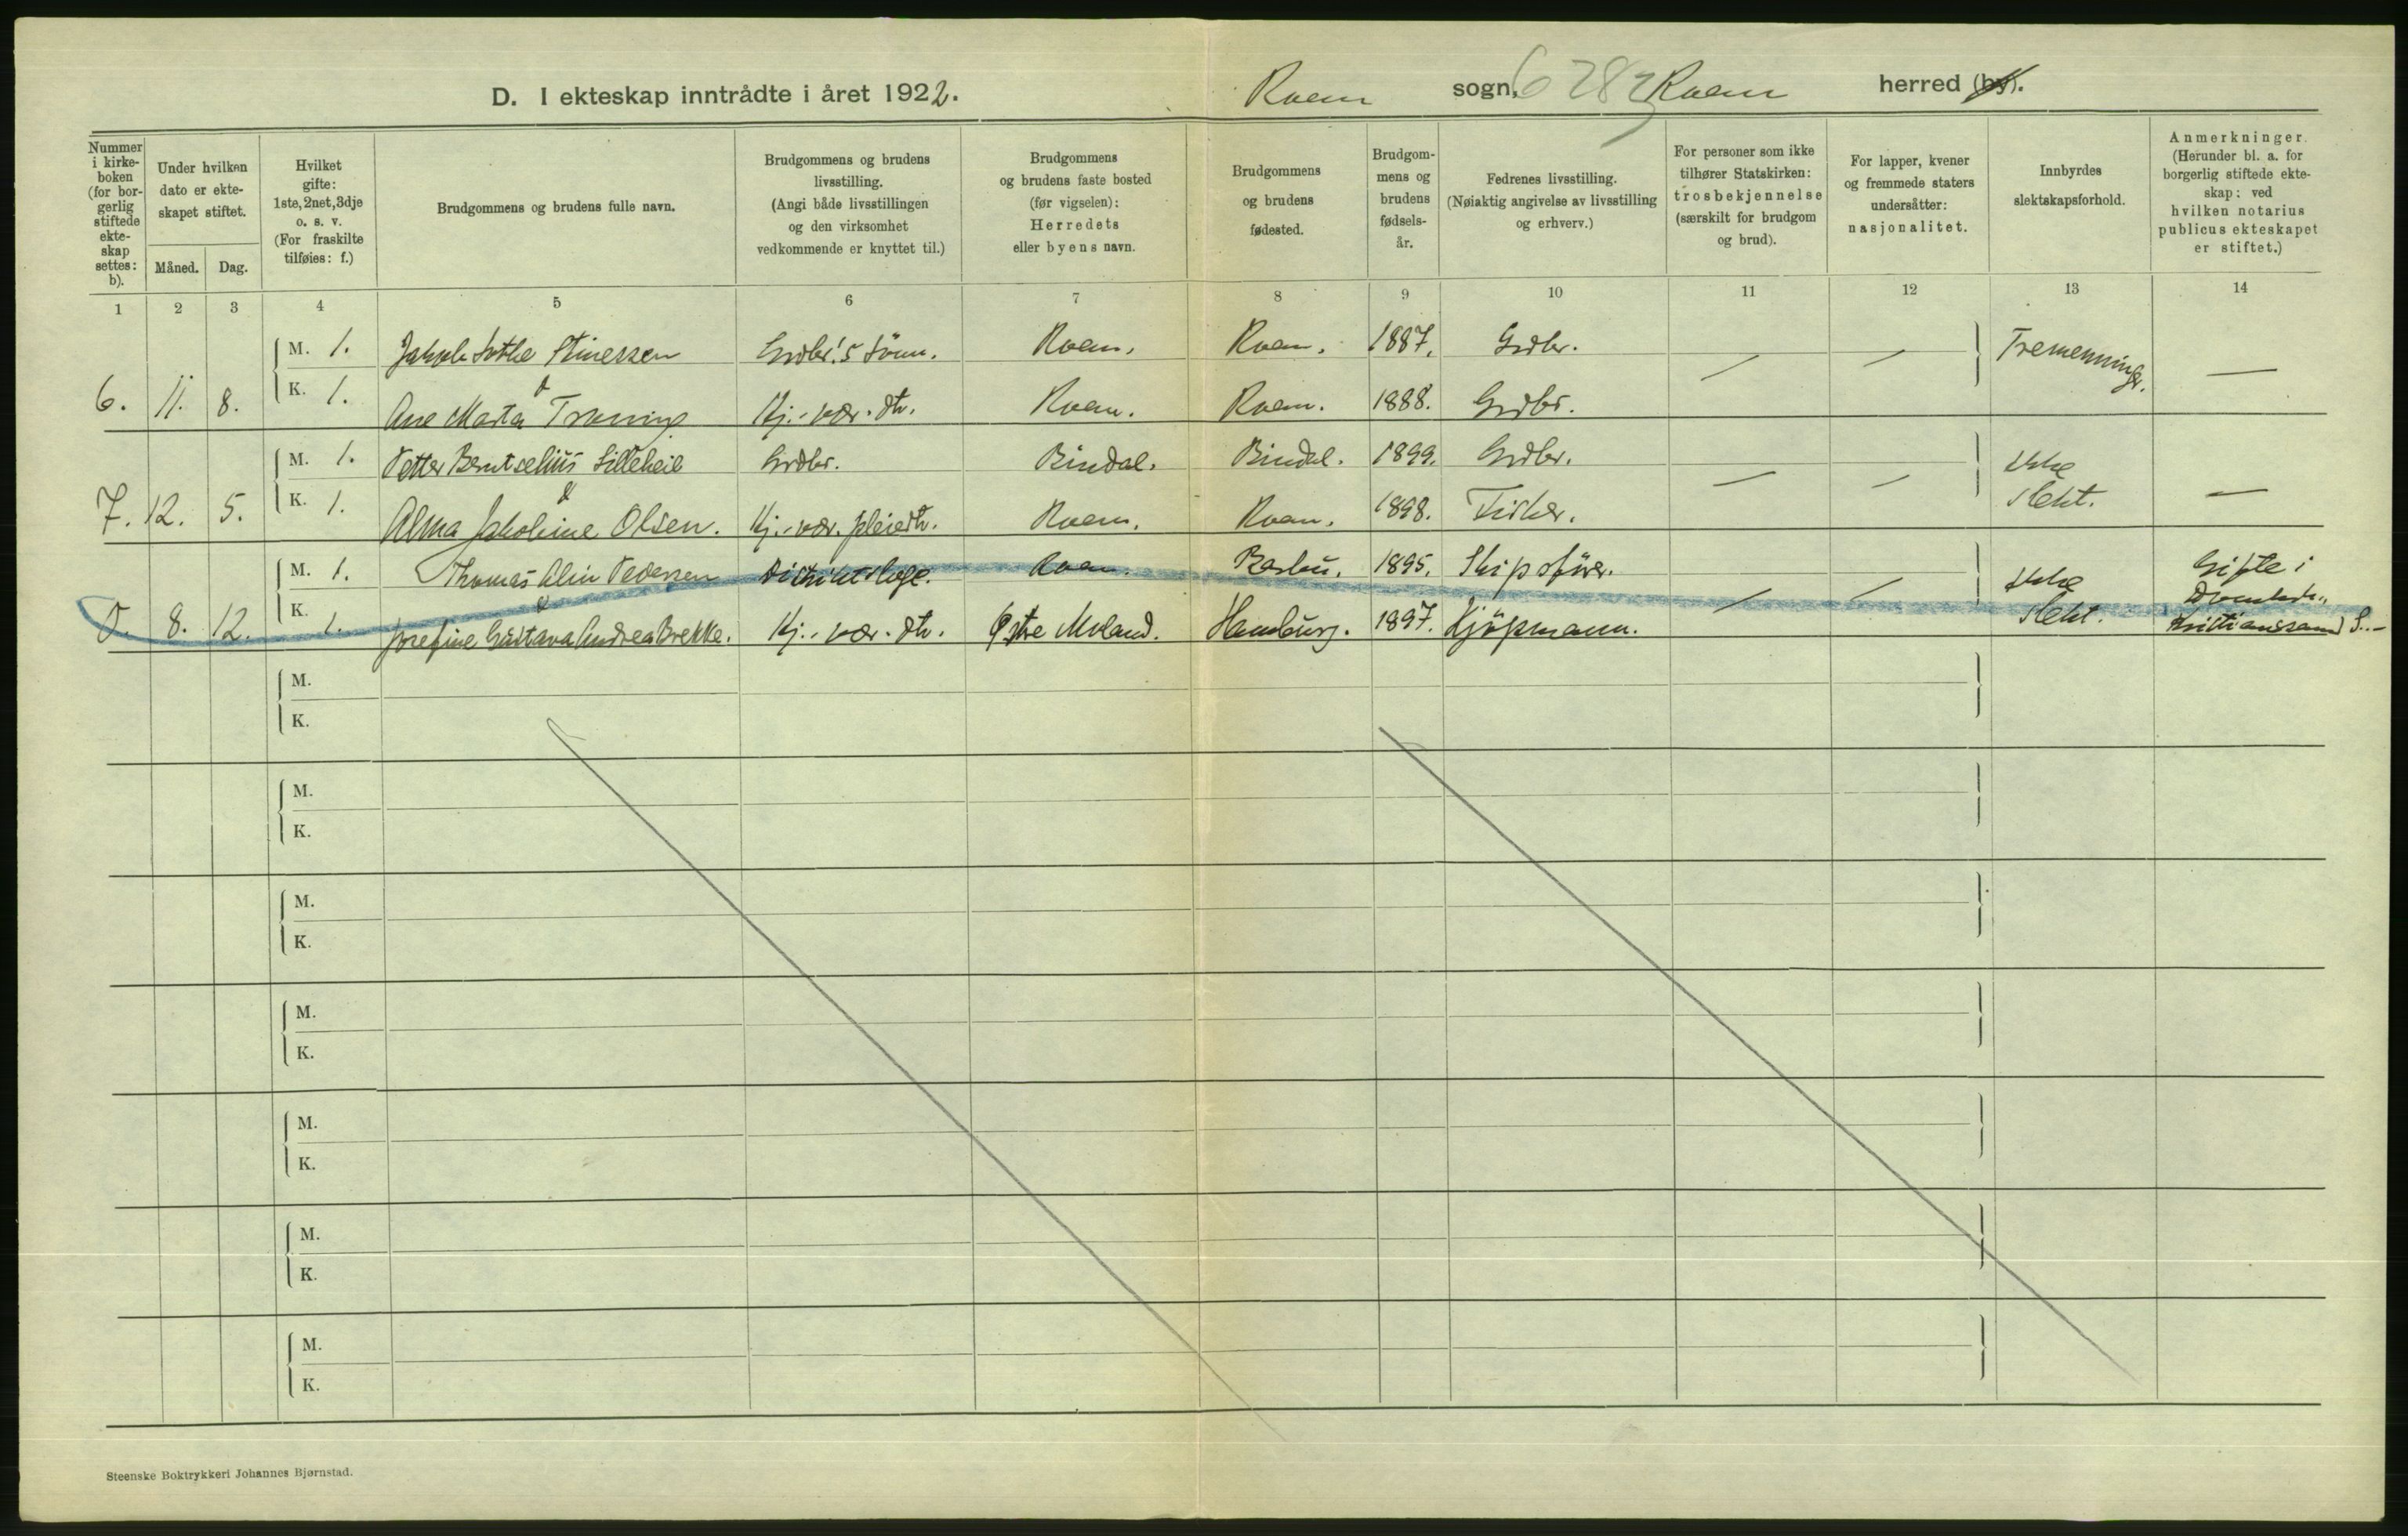 D. I ekteskap inntrådte i året 1922.
Roan sogn, 6 282 Roan herred (by).
Nummer i kirkeboken (for borgerlig stiftede ekteskap settes: b).
Under hvilken dato er ekteskapet stiftet.
Måned. Dag.
Hvilket gifte: 1ste, 2net, 3dje o. s. v. (For fraskilte tilføies: f.)
Brudgommens og brudens fulle navn.
Brudgommens og brudens livsstilling. (Angi både livsstillingen og den virksomhet vedkommende er knyttet til.)
Brudgommens og brudens faste bosted (før vigselen): Herredets eller byens navn.
Brudgommens og brudens fødested.
Brudgommens og brudens fødselsår.
Fedrenes livsstilling. (Nøiaktig angivelse av livsstilling og erhverv.)
For personer som ikke tilhører Statskirken: trosbekjennelse (særskilt for brudgom og brud).
For lapper, kvener og fremmede staters undersåtter: nasjonalitet.
Innbyrdes slektskapsforhold.
Anmerkninger. (Herunder bl. a. for borgerlig stiftede ekteskap: ved hvilken notarius publicus ekteskapet er stiftet.)
1 2 3 4 5 6 7 8 9 10 11 12 13 14
M. 1. Jakob Stinessen Grdbr.'s sönn. Roan. Roan. 1887. Grdbr. — — Tremenninger.
6. 11. 8. K. 1. Ane Marta Kj.-vær. dtr. Roan. Roan. 1888. Grdbr. —
M. 1. Petter Berntselius Lilleheil Grdbr. Bindal. Bindal. 1899. Grdbr. — — Ikke
7. 12. 5. K. 1. & Alma Jakobine Olsen. Kj.-vær. pleiedtr. Roan. Roan. 1898. Fisker. slekt. —
M. 1. Thomas Pedersen Distriktslæge. Roan. 1895. Skipsfører. — — Ikke Gifte i
0. 8. 12. K. 1. & Josefine Gustava Andrea Brekke. Kj.-vær. dtr. Østre Moland. Hamburg. 1897. Kjöpmann. slekt. Kristianssand S.-
M.
K.
M.
K.
M.
K.
M.
K.
M.
K.
M.
K.
M.
K.
Steenske Boktrykkeri Johannes Bjørnstad.